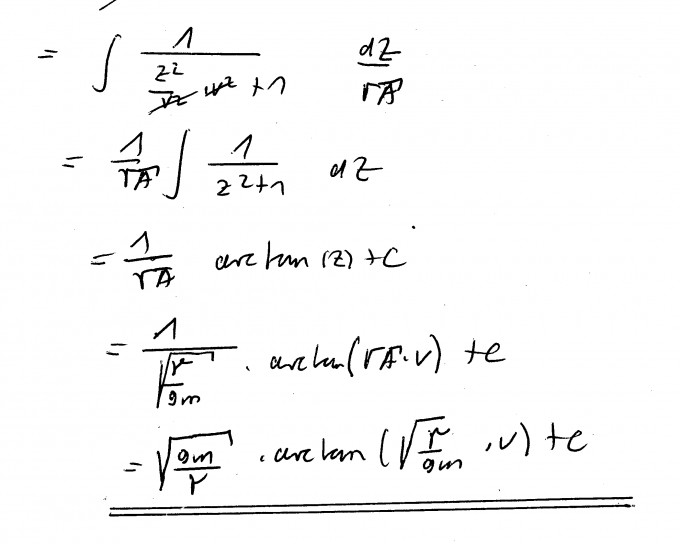 = ∫ 1/(z²/v² · v² + 1) dz/√A
= 1/√A ∫ 1/(z²+1) dz
= 1/√A arctan (z) + C
= 1/√(r/gm) · arctan(√A · v) + C
= √(gm/r) · arctan (√(r/gm) · v) + C